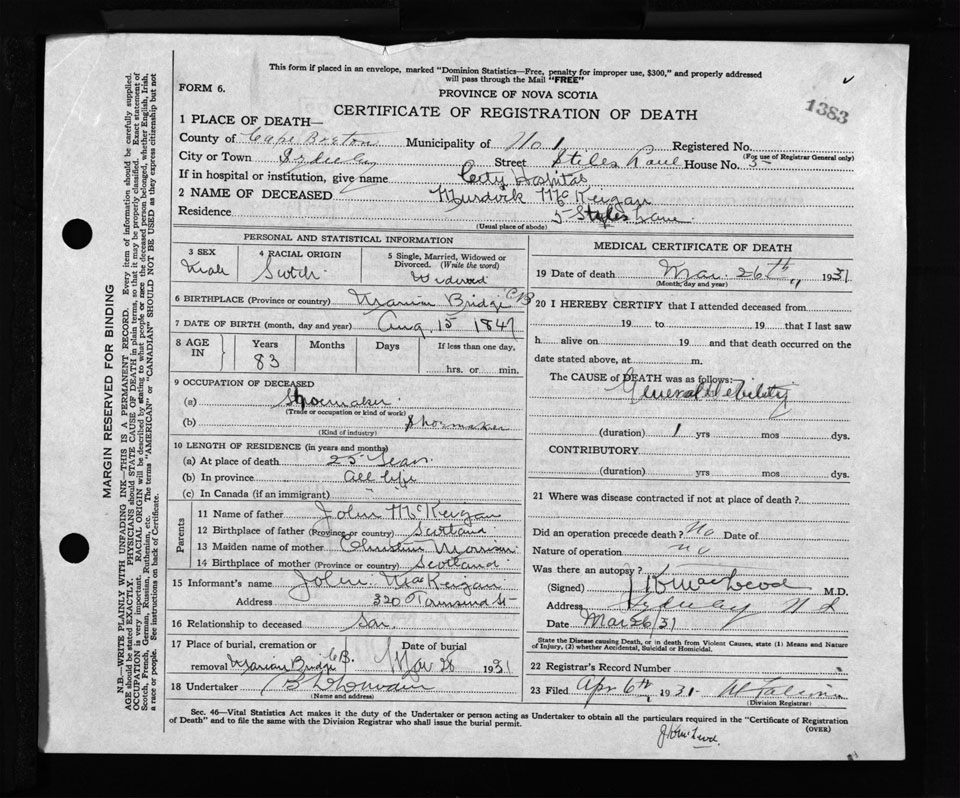 This form if placed in an envelope, marked "Dominion Statistics—Free, penalty for improper use, $300," and properly addressed
will pass through the Mail "FREE"
FORM 6.
PROVINCE OF NOVA SCOTIA
1383
CERTIFICATE OF REGISTRATION OF DEATH
1 PLACE OF DEATH—
County of Cape Breton Municipality of No 1 Registered No.
(For use of Registrar General only)
City or Town Sydney Street Stiles Lane House No. 5
If in hospital or institution, give name City Hospital
2 NAME OF DECEASED Murdock McKeigan
Residence 5 Styles Lane
(Usual place of abode)
PERSONAL AND STATISTICAL INFORMATION
3 SEX Male
4 RACIAL ORIGIN Scotch
5 Single, Married, Widowed or Divorced. (Write the word) Widowed
6 BIRTHPLACE (Province or country) Marion Bridge C B
7 DATE OF BIRTH (month, day and year) Aug 15 1847
8 AGE IN Years 83 Months Days If less than one day, hrs. or min.
9 OCCUPATION OF DECEASED
(a) Shoemaker
(Trade or occupation or kind of work)
(b) Shoemaker
(Kind of industry)
10 LENGTH OF RESIDENCE (in years and months)
(a) At place of death 25 Years
(b) In province all life
(c) In Canada (if an immigrant)
Parents
11 Name of father John McKeigan
12 Birthplace of father (Province or country) Scotland
13 Maiden name of mother Christina Morrison
14 Birthplace of mother (Province or country) Scotland
15 Informant's name John MacKeigan
Address 320 Townsend St
16 Relationship to deceased Son
17 Place of burial, cremation or removal Marion Bridge C.B. Date of burial Mar 28 1931
18 Undertaker
(Name and address)
MEDICAL CERTIFICATE OF DEATH
19 Date of death Mar. 26th 1931
(Month, day and year)
20 I HEREBY CERTIFY that I attended deceased from
19 to 19 that I last saw
h alive on 19 and that death occurred on the
date stated above, at m.
The CAUSE of DEATH was as follows:
General Debility
(duration) 1 yrs mos dys.
CONTRIBUTORY
(duration) yrs mos dys.
21 Where was disease contracted if not at place of death?
Did an operation precede death? No Date of
Nature of operation no
Was there an autopsy?
(Signed) J K MacLeod M.D.
Address Sydney N S
Date Mar 26/31
State the Disease causing Death, or in death from Violent Causes, state (1) Means and Nature
of Injury, (2) whether Accidental, Suicidal or Homicidal.
22 Registrar's Record Number
23 Filed Apr 6th 1931
(Division Registrar)
Sec. 46—Vital Statistics Act makes it the duty of the Undertaker or person acting as Undertaker to obtain all the particulars required in the "Certificate of Registration
of Death" and to file the same with the Division Registrar who shall issue the burial permit.
(OVER)
J K McLeod
MARGIN RESERVED FOR BINDING
N.B.—WRITE PLAINLY WITH UNFADING INK—THIS IS A PERMANENT RECORD. Every item of information should be carefully supplied.
AGE should be stated EXACTLY. PHYSICIANS should STATE CAUSE OF DEATH in plain terms, so that it may be properly classified. Exact statement of
OCCUPATION is very important. RACIAL ORIGIN will be described by stating to what people or race the deceased person belonged, whether English, Irish,
Scotch, French, German, Russian, Ruthenian, etc. The terms "AMERICAN" or "CANADIAN" SHOULD NOT BE USED as they express citizenship but not
a race or people. See instructions on back of Certificate.